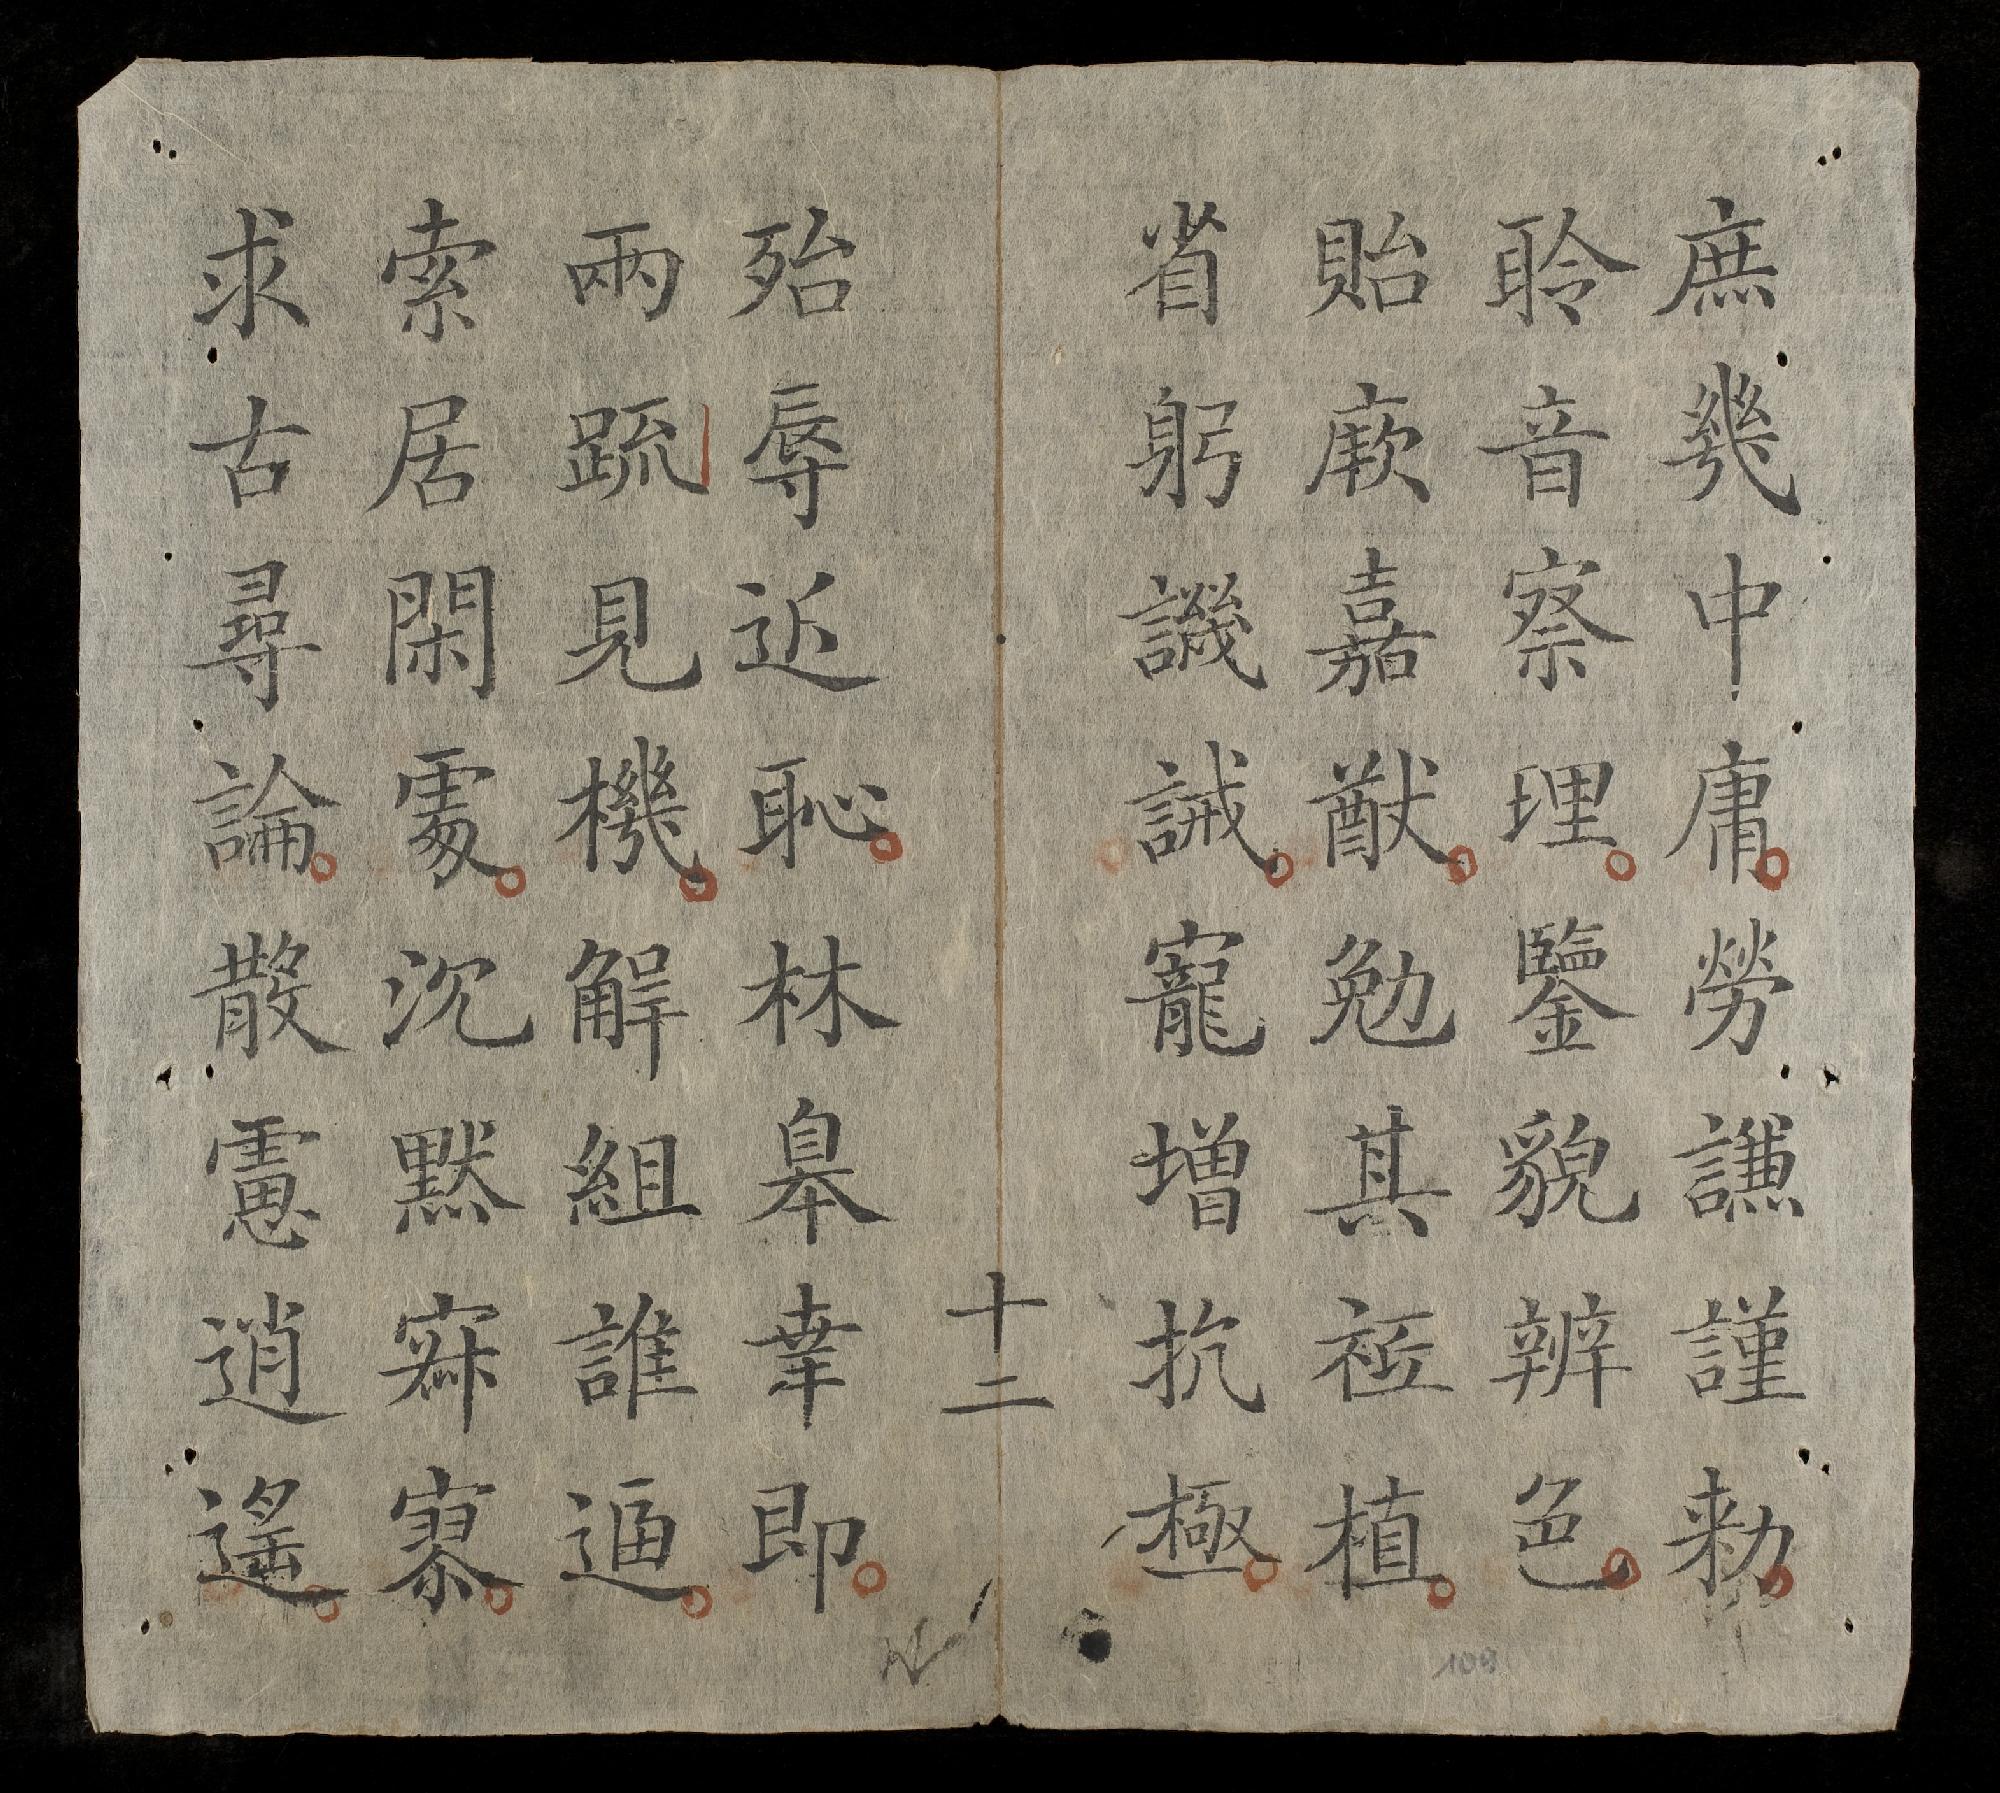 庶幾中庸勞謙謹勑
聆音察理鑒貌辨色
貽厥嘉猷勉其祗植
省躬譏誡寵增抗極
十二
殆辱近恥林皋幸即
兩疏見機解組誰逼
索居閑處沉默寂寥
求古尋論散慮逍遙
108